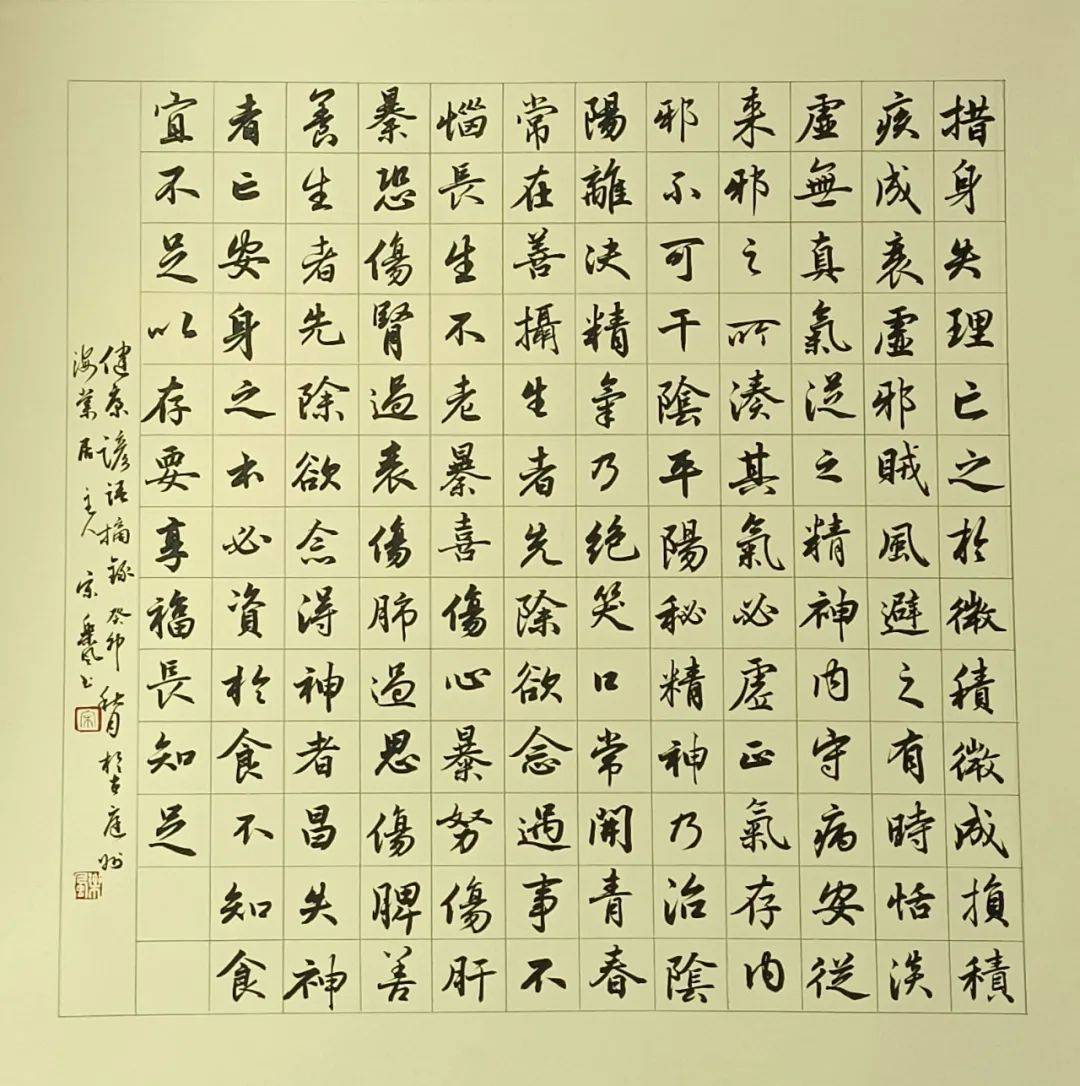 措身失理亡之於微積微成損積
疾成衰虛邪賊風避之有時恬淡
虛無真氣從之精神内守病安從
来邪之所湊其氣必虛正氣存内
邪不可干陰平陽秘精神乃治陰
陽離決精氣乃絶笑口常開青春
常在善攝生者先除欲念遇事不
惱長生不老暴喜傷心暴努傷肝
暴恐傷腎過哀傷肺過思傷脾善
養生者先除欲念得神者昌失神
者亡安身之本必資於食不知食
宜不足以存要享福長知足
健康諺語摘錄癸卯秋月於古庭州
海棠居主人宗